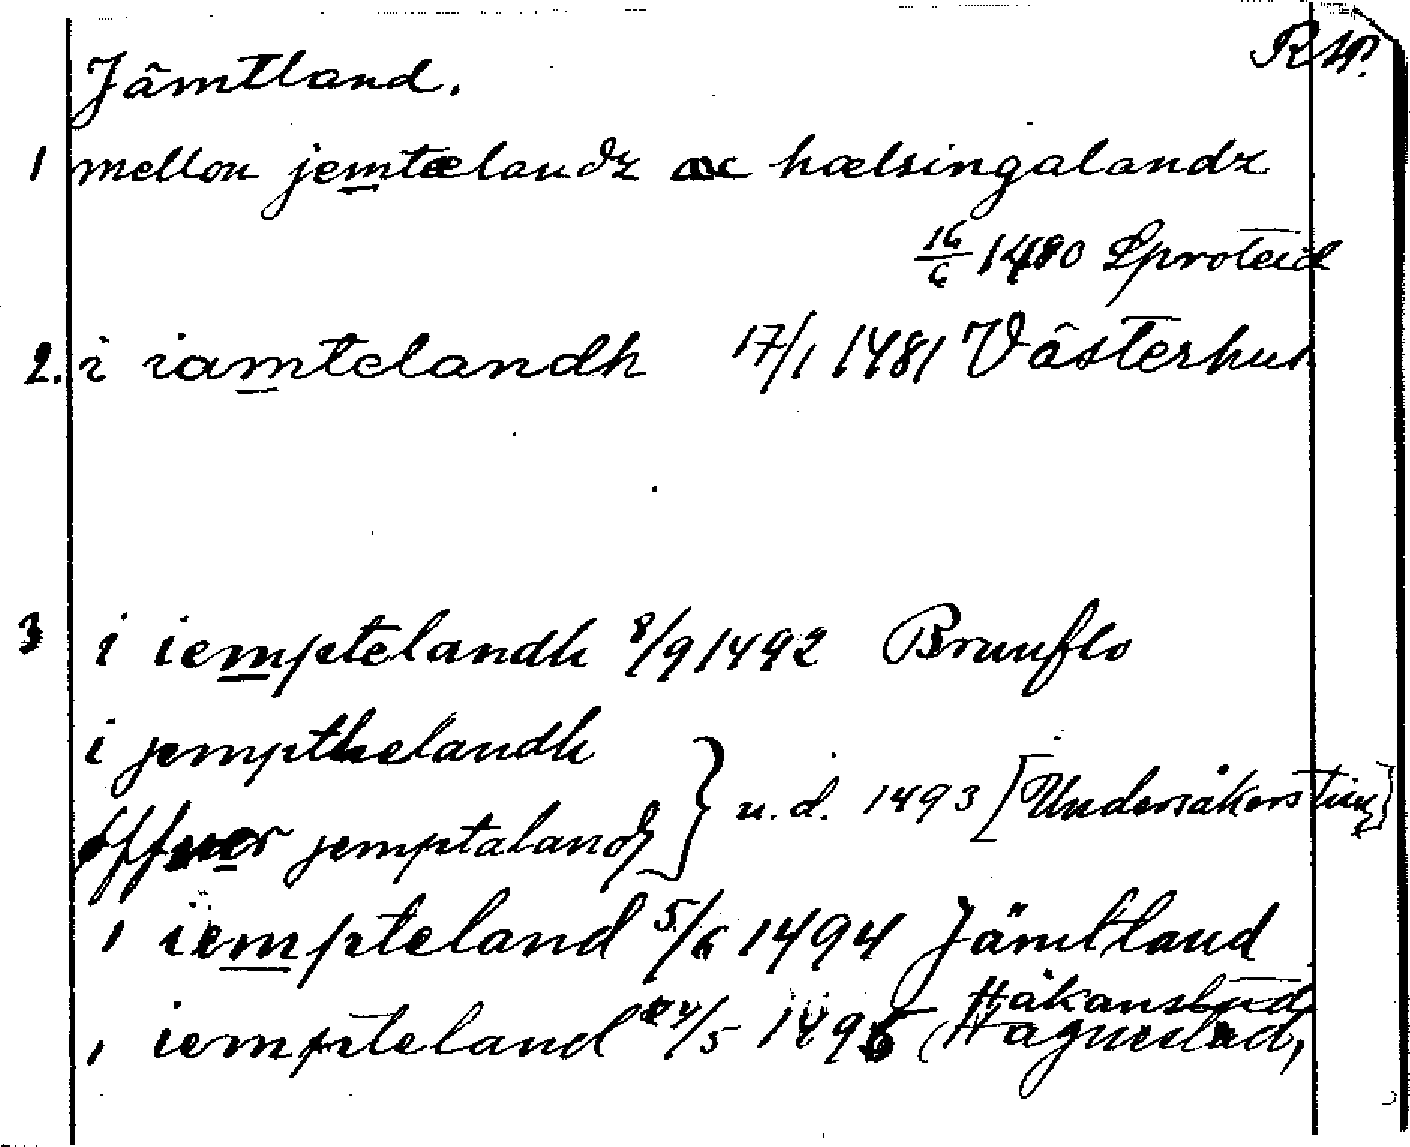 Jämtland.
1 mellon jemtælandz ac hælsingalandz
16/6 1480 Sproteid
2. i iamtelandh 17/1 1481 Västerhus
3 i iemptelandh 8/9 1492 Brunflo
i jempthelandh
öffuer jemptaland u.d. 1493 [Undersåkers ting]
i iempteland 5/6 1494 Jämtland
Håkanstad
i iempteland 24/5 1495 (Hagnestad,